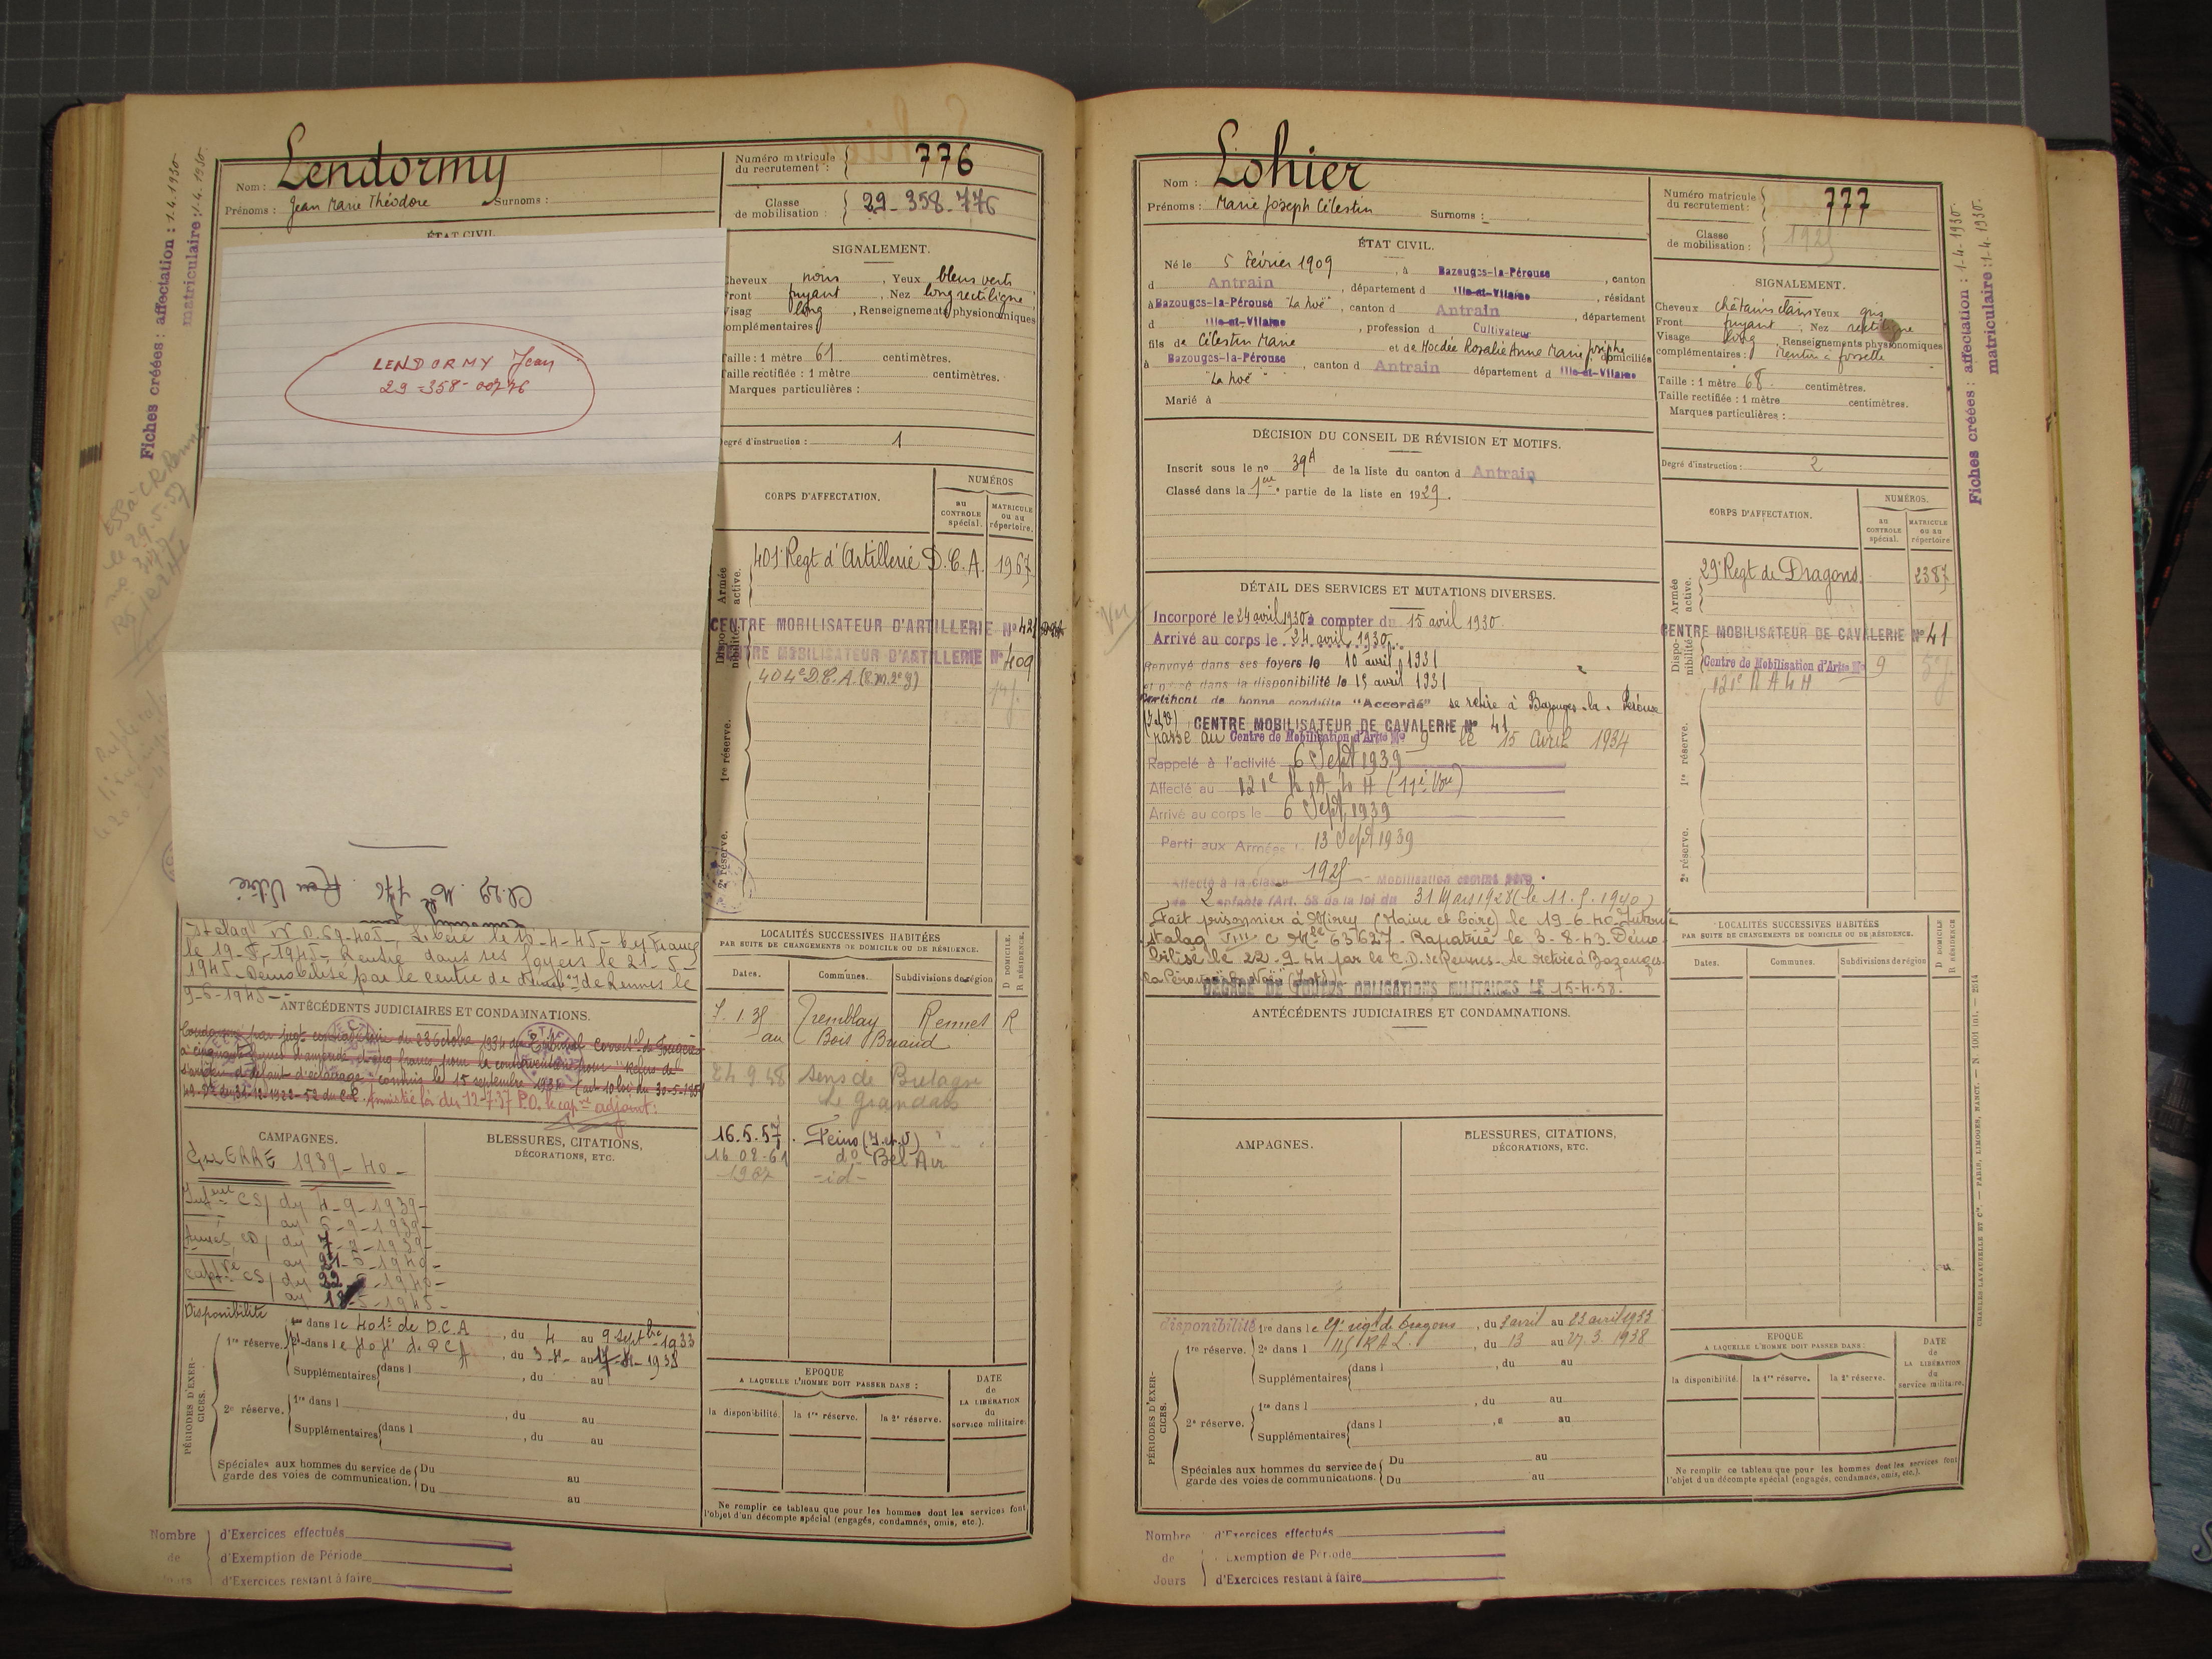 Lendormy
Nom :
Prénoms : Jean Marie Théodore Surnoms :
Numéro matricule du recrutement : 776
Classe de mobilisation : 29_358_776
Fiches créées : affectation : 1.4.1930
matriculaire : 1.4.1930
ÉTAT CIVIL
LENDORMY Jean
29-358-00776
SIGNALEMENT.
Cheveux noirs, Yeux bleus verts
Front fuyant, Nez long rectiligne
Visag long, Renseignements physionomiques
complémentaires
Taille : 1 mètre 61 centimètres.
Taille rectifiée : 1 mètre centimètres.
Marques particulières :
Degré d'instruction : 1
CORPS D'AFFECTATION.
NUMÉROS
au CONTROLE spécial.
MATRICULE ou au répertoire.
Armée active.
401e Regt d'Artillerie D.C.A. 1967
Disponibilité.
CENTRE MOBILISATEUR D'ARTILLERIE No 421
CENTRE MOBILISATEUR D'ARTILLERIE No 409
404e D.C.A.
1re réserve.
2e réserve.
Cl. 29 Mle 776 Rau Vitré
Stalag Libéré le
le 19-5-1945. Rentré dans ses foyers le 21-5-
1945. Démobilisé par le centre de de Rennes le
9-6-1945
ANTÉCÉDENTS JUDICIAIRES ET CONDAMNATIONS.
Amnistié loi du 12-7-37 P.O. le capne adjoint :
CAMPAGNES.
GUERRE 1939-40-
CS/ du 4-9-1939-
au 6-9-1939-
Armées
au 21-5-1940-
CS/ du 22-5-1940-
au 18-5-1945-
BLESSURES, CITATIONS,
DÉCORATIONS, ETC.
LOCALITÉS SUCCESSIVES HABITÉES
PAR SUITE DE CHANGEMENTS DE DOMICILE OU DE RÉSIDENCE.
Dates. Communes. Subdivisions de région D DOMICILE. R RÉSIDENCE.
Tremblay Rennes R
au Bois Bruand
24 9 48 Sens de Bretagne
16.5.57 Feins (I.et.V)
16 02-61 do Bel Air
-id-
PÉRIODES D'EXERCICES.
Disponibilité
1re dans le 401e de D.C.A, du 4 au 9 Septbre 1933
1re réserve.
Supplémentaires dans l, du au
2e réserve.
1re dans l, du au
Supplémentaires dans l, du au
Spéciales aux hommes du service de garde des voies de communication. Du au
Du au
EPOQUE
A LAQUELLE L'HOMME DOIT PASSER DANS :
la disponibilité. la 1re réserve. la 2e réserve.
DATE de LA LIBÉRATION du service militaire.
Ne remplir ce tableau que pour les hommes dont les services font
l'objet d'un décompte spécial (engagés, condamnés, omis, etc.).
Nombre de Jours
d'Exercices effectués
d'Exemption de Période
d'Exercices restant à faire
Lohier
Nom :
Prénoms : Marie Joseph Célestin Surnoms :
Numéro matricule du recrutement : 777
Classe de mobilisation :
Fiches créées : affectation : 1-4-1930.
matriculaire : 1-4-1930.
ÉTAT CIVIL.
Né le 5 Février 1909, à Bazouges-la-Pérouse, canton
d Antrain, département d Ille-et-Vilaine, résidant
à Bazouges-la-Pérouse "La Noë", canton d Antrain, département
d Ille-et-Vilaine, profession d Cultivateur
fils de Célestin Marie et de Hocdée Rosalie Anne Marie Josèphe domiciliés
à Bazouges-la-Pérouse "La Noë", canton d Antrain département d Ille-et-Vilaine
Marié à
SIGNALEMENT.
Cheveux châtains clairs Yeux gris
Front fuyant, Nez rectiligne
Visage long, Renseignements physionomiques
complémentaires : Menton à fossette
Taille : 1 mètre 68 centimètres.
Taille rectifiée : 1 mètre centimètres.
Marques particulières :
Degré d'instruction : 2
DÉCISION DU CONSEIL DE RÉVISION ET MOTIFS.
Inscrit sous le no 39A de la liste du canton d Antrain
Classé dans la 1ere partie de la liste en 1929.
CORPS D'AFFECTATION.
NUMÉROS.
au CONTROLE spécial.
MATRICULE ou au répertoire
Armée active.
29e Regt de Dragons 2387
Disponibilité.
CENTRE MOBILISATEUR DE CAVALERIE No 41
Centre de Mobilisation d'Artie No 9
121e R A L H
1re réserve.
2e réserve.
DÉTAIL DES SERVICES ET MUTATIONS DIVERSES.
Incorporé le 24 avril 1930 à compter du 15 avril 1930
Arrivé au corps le 24 avril 1930
Renvoyé dans ses foyers le 10 avril 1931
dans la disponibilité le 15 avril 1931
Certificat de bonne conduite "Accordé" se retire à Bazouges-la-Pérouse
(I et V) CENTRE MOBILISATEUR DE CAVALERIE No 41
passé au Centre de Mobilisation d'Artie No 9 le 15 avril 1934
Rappelé à l'activité 6 Sept 1939
Affecté au 121e R A L H
Arrivé au corps le 6 Sept 1939
Parti aux Armées 13 Sept 1939
Affecté à la classe Mobilisation comme père
de 2 enfants (Art. 58 de la loi du 31 Mars 1928
Fait prisonnier à Mirey (Maine et Loire) le 19-6-40
Stalag VIII C Mle 63627. Rapatrié le 3-8-43. Démo
bilisé le 22-9-44 par le C.D. de Rennes. Se retire à Bazouges
la Pérouse
DÉGAGÉ DE TOUTES OBLIGATIONS MILITAIRES LE 15-4-58.
ANTÉCÉDENTS JUDICIAIRES ET CONDAMNATIONS.
AMPAGNES.
BLESSURES, CITATIONS,
DÉCORATIONS, ETC.
LOCALITÉS SUCCESSIVES HABITÉES
PAR SUITE DE CHANGEMENTS DE DOMICILE OU DE RÉSIDENCE.
Dates. Communes. Subdivisions de région D DOMICILE R RÉSIDENCE
PÉRIODES D'EXERCICES.
disponibilité 1re dans le 29e régt de Dragons, du 3 avril au 23 avril 1933
1re réserve. 2e dans l 115 R A L. du 13 au 27.3 1938
Supplémentaires dans l, du au
2e réserve.
1re dans l, du au
Supplémentaires dans l au
Spéciales aux hommes du service de garde des voies de communications. Du au
Du au
EPOQUE
A LAQUELLE L'HOMME DOIT PASSER DANS :
la disponibilité. la 1re réserve. la 2e réserve.
DATE de LA LIBÉRATION du service militaire.
Ne remplir ce tableau que pour les hommes dont les services font
l'objet d'un décompte spécial (engagés, condamnés, omis, etc.).
CHARLES-LAVAUZELLE ET Cie. — PARIS, LIMOGES, NANCY.
Nombre de Jours
d'Exercices effectués
Exemption de Période
d'Exercices restant à faire